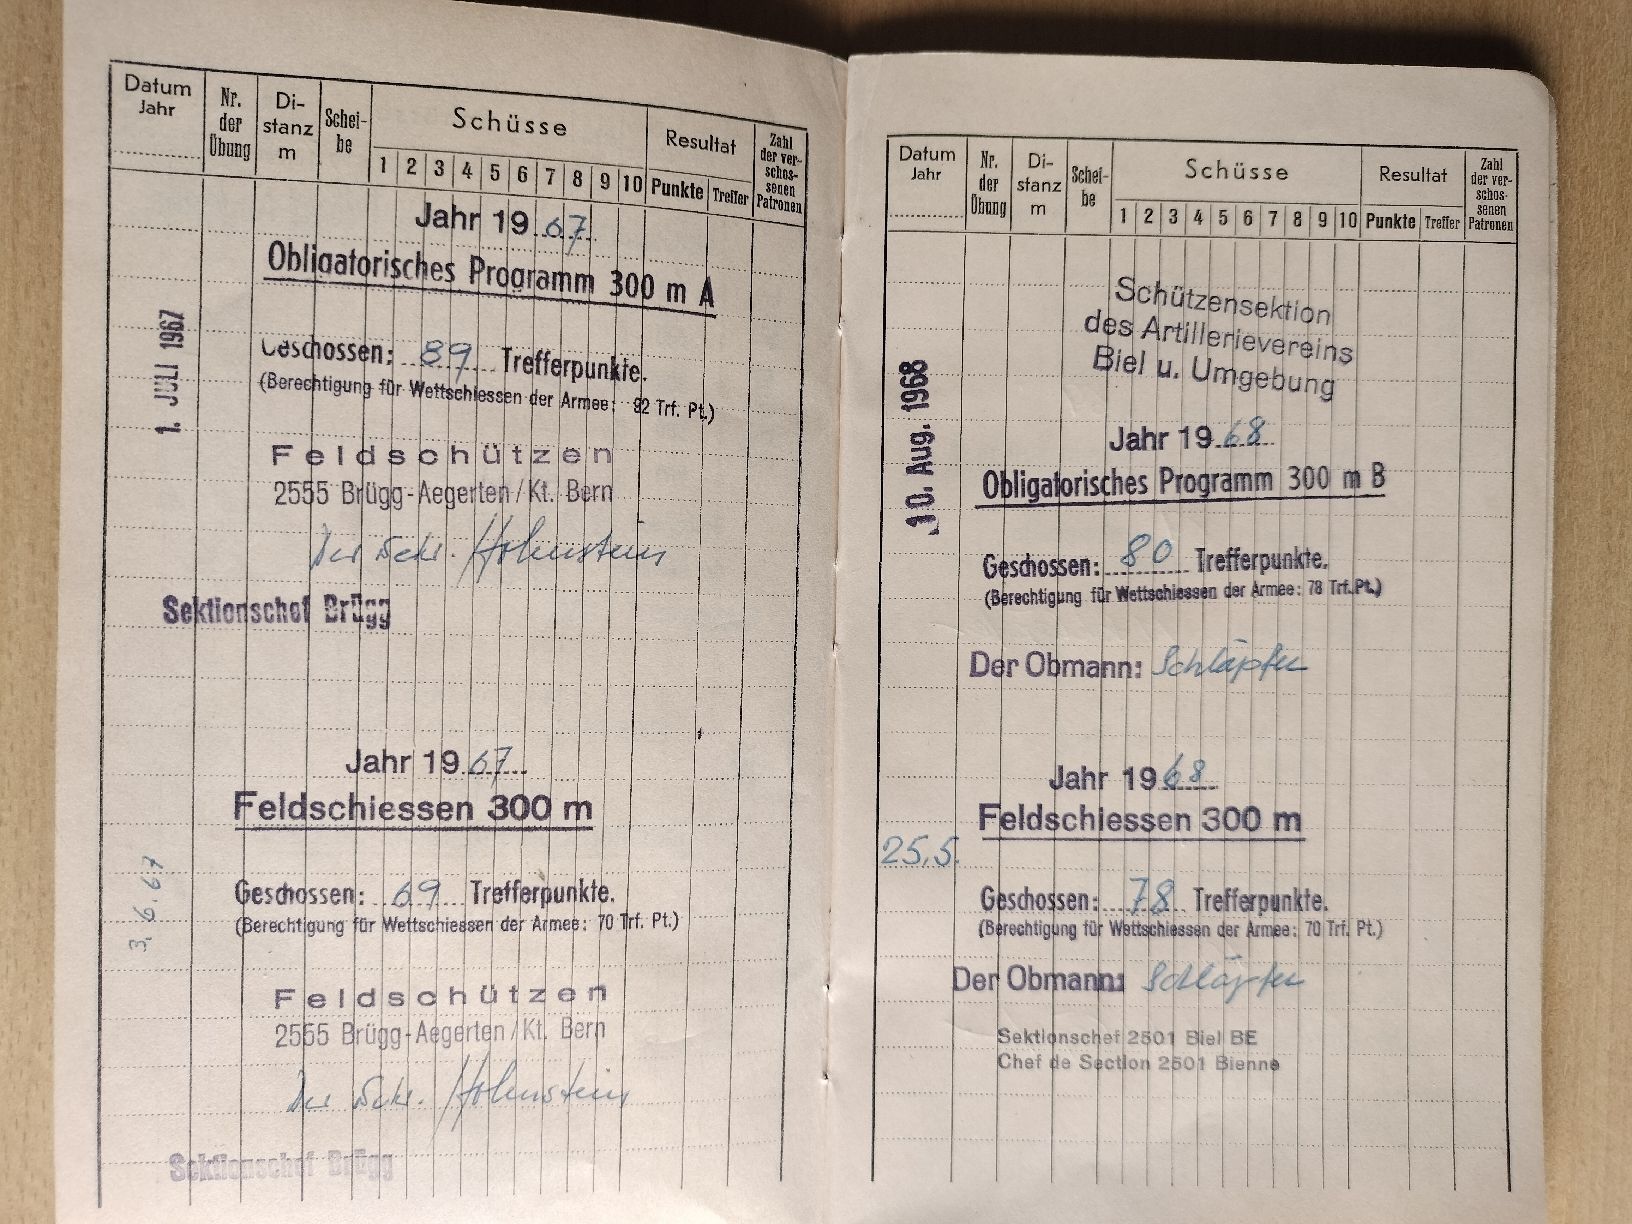 Datum
Jahr
Nr.
der
Übung
Di-
stanz
m
Schei-
be
Schüsse
1 2 3 4 5 6 7 8 9 10
Resultat
Punkte Treffer
Zahl
der ver-
schos-
senen
Patronen
Jahr 1967
Obligatorisches Programm 300 m A
1. JULI 1967
Geschossen: 89 Trefferpunkte.
(Berechtigung für Wettschiessen der Armee: 92 Trf. Pt.)
Feldschützen
2555 Brügg-Aegerten/Kt. Bern
Der Sekr. Hohnstein
Sektionschef Brügg
Jahr 1967
Feldschiessen 300 m
3. 6. 67
Geschossen: 69 Trefferpunkte.
(Berechtigung für Wettschiessen der Armee: 70 Trf. Pt.)
Feldschützen
2555 Brügg-Aegerten/Kt. Bern
Der Sekr. Hohnstein
Sektionschef Brügg
Datum
Jahr
Nr.
der
Übung
Di-
stanz
m
Schei-
be
Schüsse
1 2 3 4 5 6 7 8 9 10
Resultat
Punkte Treffer
Zahl
der ver-
schos-
senen
Patronen
Schützensektion
des Artillerievereins
Biel u. Umgebung
10. Aug. 1968
Jahr 1968
Obligatorisches Programm 300 m B
Geschossen: 80 Trefferpunkte.
(Berechtigung für Wettschiessen der Armee: 78 Trf. Pt.)
Der Obmann: Schläpfer
Jahr 1968
Feldschiessen 300 m
25.5.
Geschossen: 78 Trefferpunkte.
(Berechtigung für Wettschiessen der Armee: 70 Trf. Pt.)
Der Obmann: Schläpfer
Sektionschef 2501 Biel BE
Chef de Section 2501 Bienne